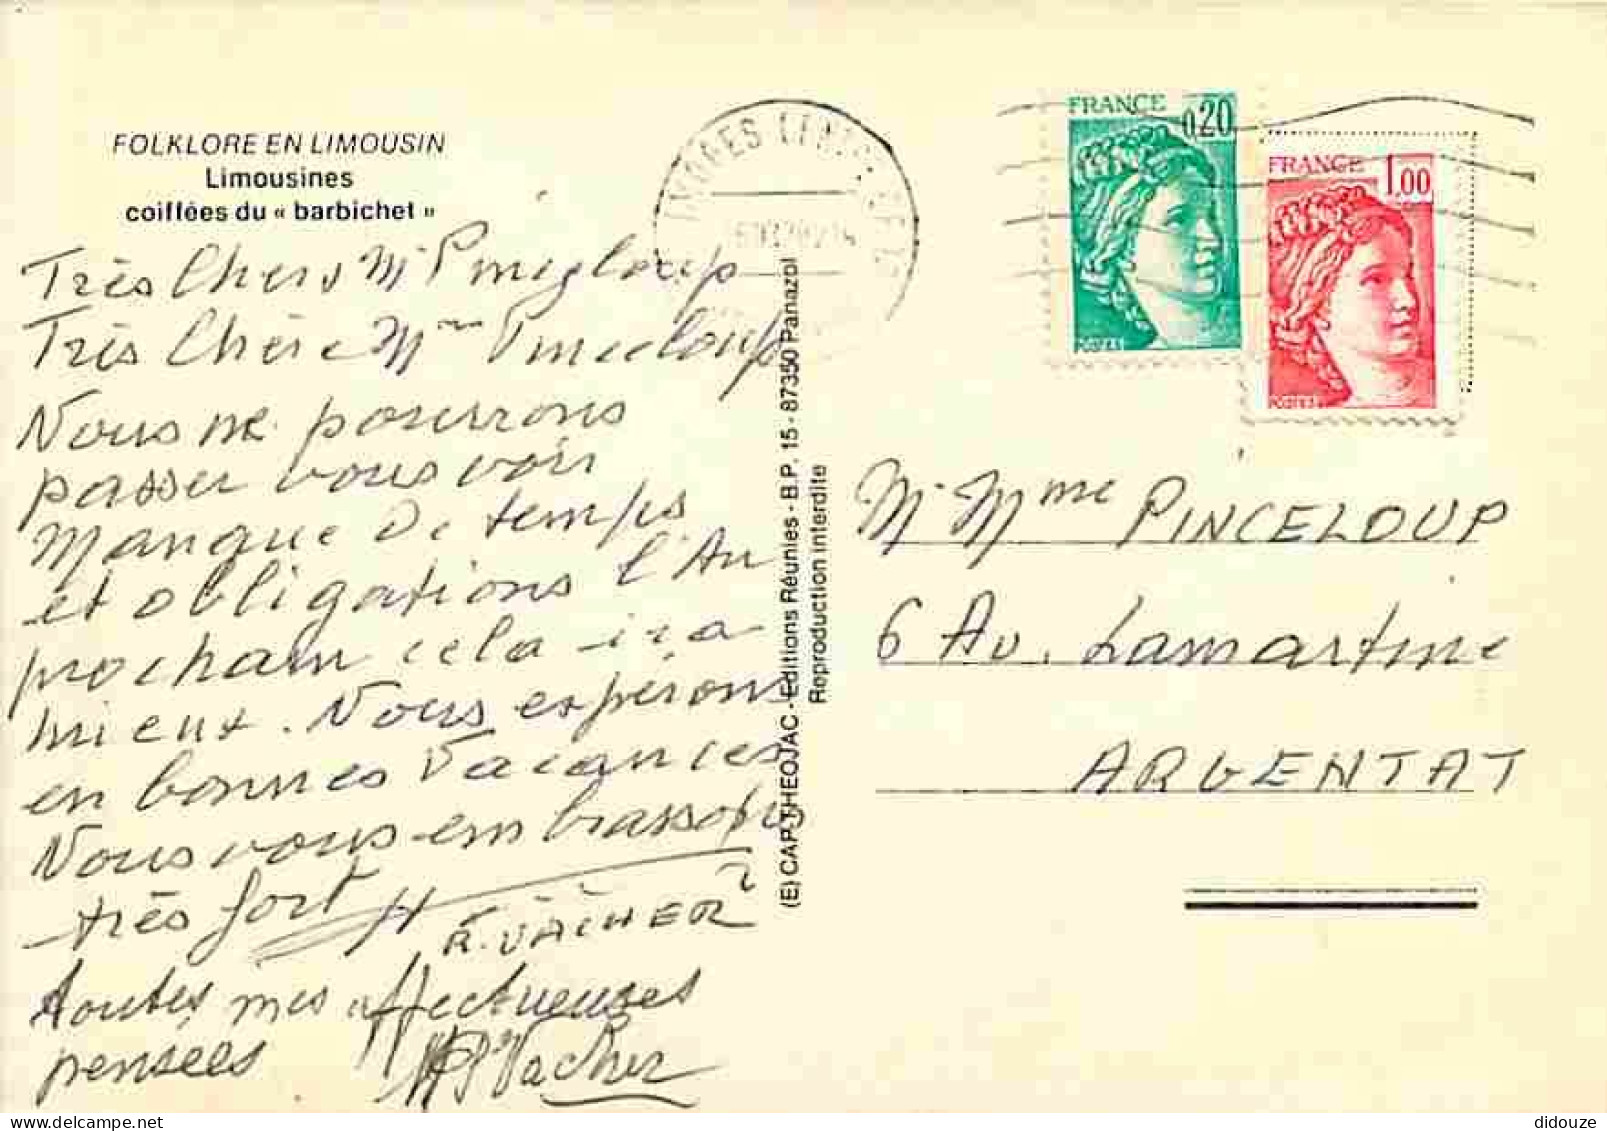 FOLKLORE EN LIMOUSIN
Limousines
coiffées du « barbichet »
Très Chers Mr Pinceloup
Très Chère Mme Pinceloup
Nous ne pourrons
passer vous voir
Manque de temps
et obligations l'An
prochain cela ira
mieux. Nous espérons
en bonnes Vacances
Nous vous embrassons
très fort
R. VACHER
toutes mes affectueuses
pensées Vacher
(E) CAP-THEOJAC - Editions Réunies - B.P. 15 - 87350 Panazol
Reproduction interdite
LIMOGES
FRANCE 0,20
FRANCE 1,00
Mr Mme PINCELOUP
6 Av. Lamartine
ARGENTAT
didouze